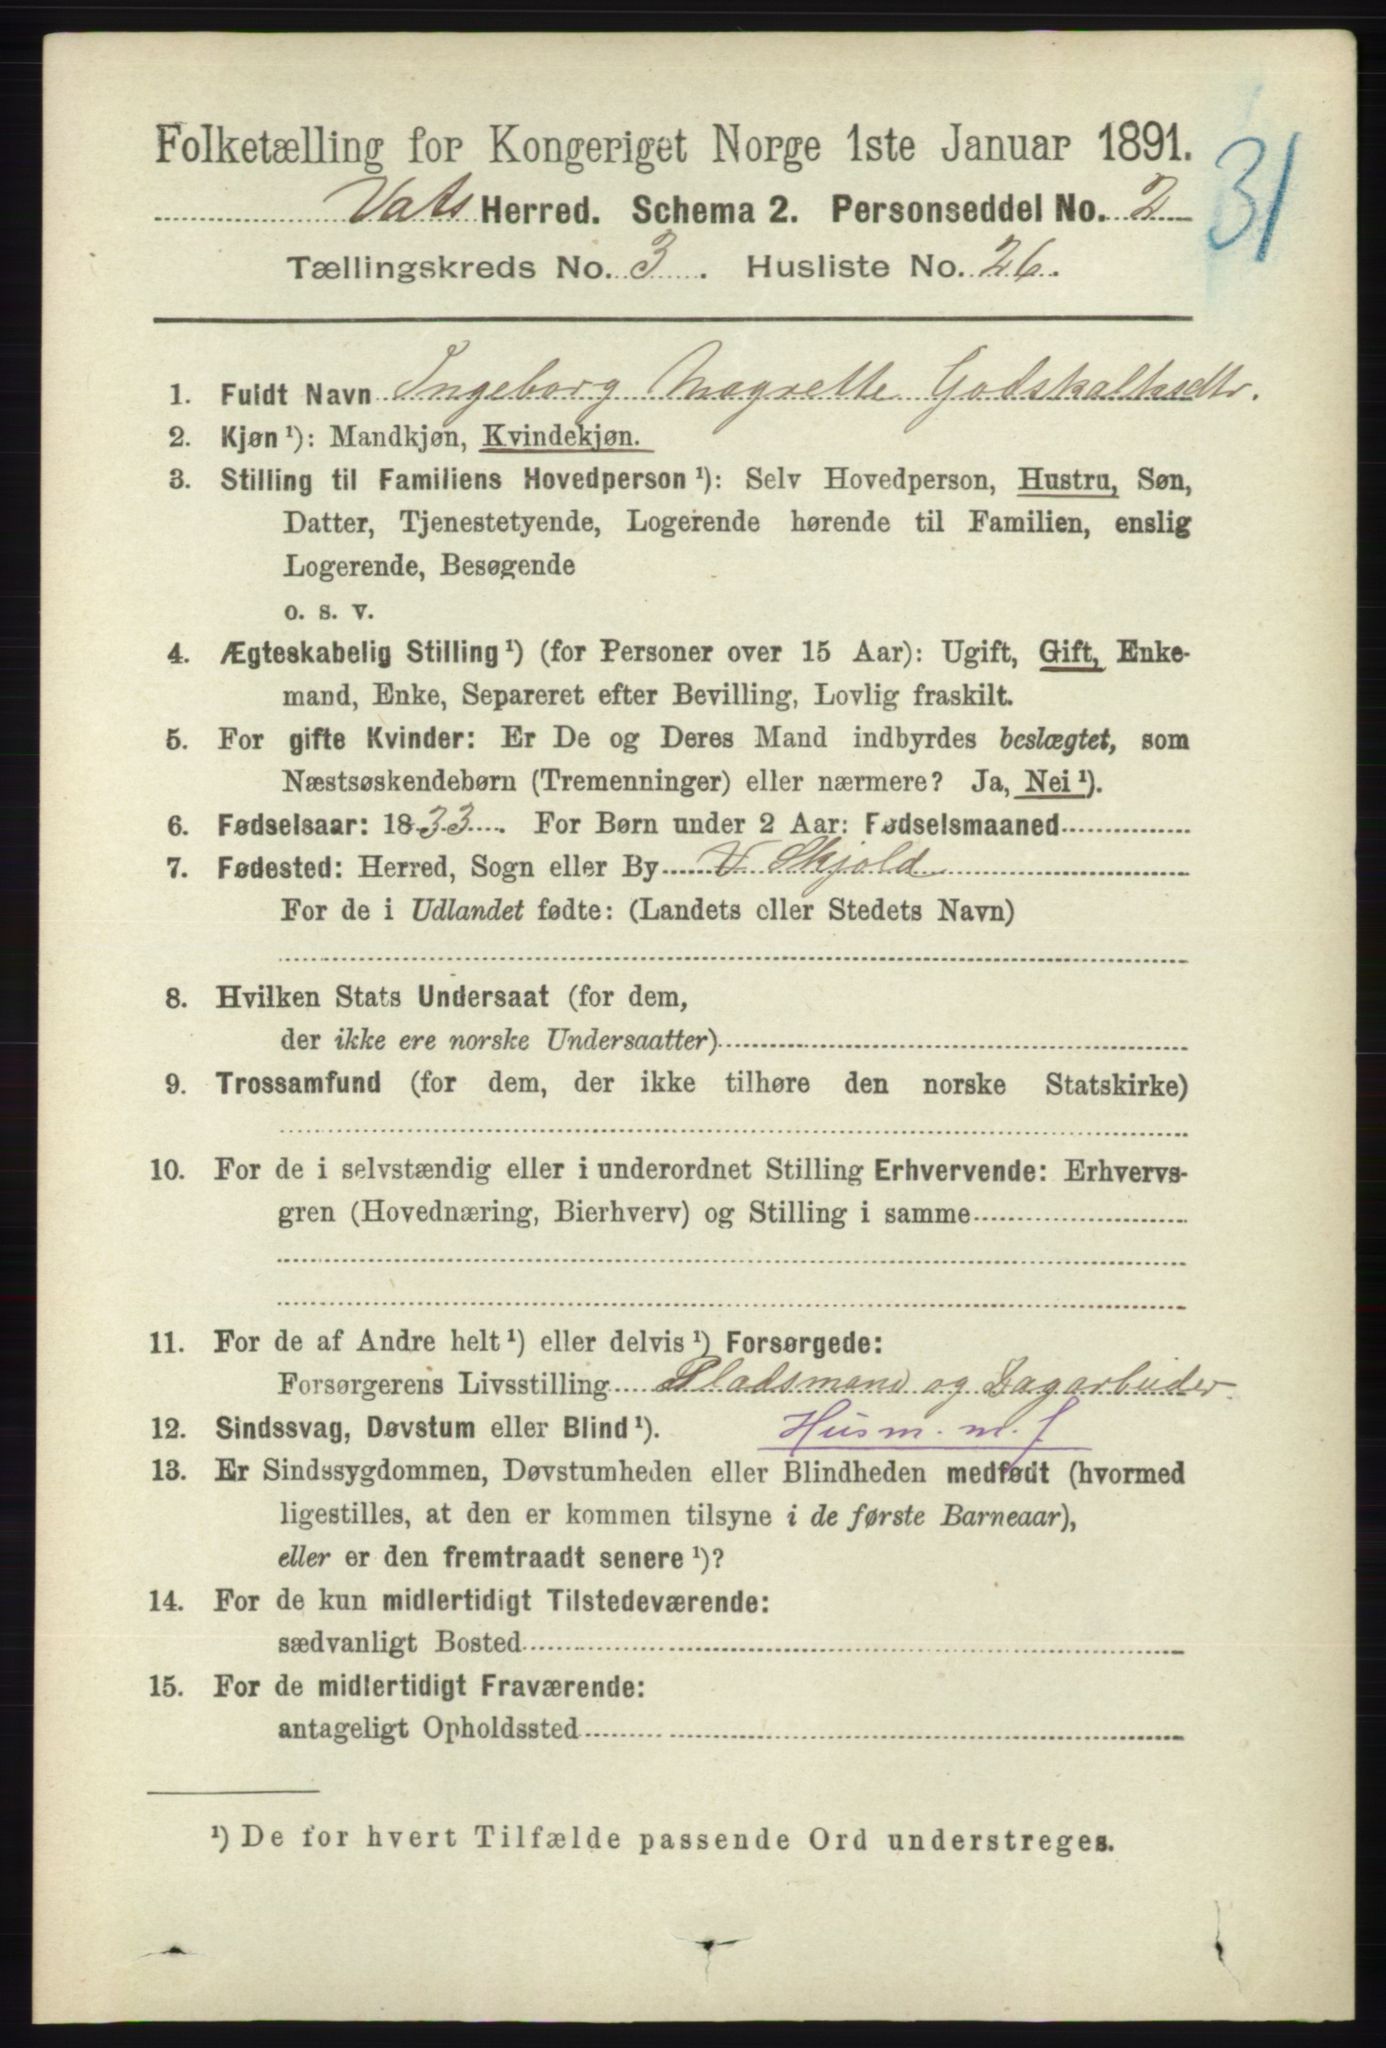 Folketælling for Kongeriget Norge 1ste Januar 1891.
31
Vats Herred. Schema 2. Personseddel No. 2
Tællingskreds No. 3. Husliste No. 26.
1. Fuldt Navn Ingeborg Magrette Godskalksdtr.
2. Kjøn ¹): Mandkjøn, Kvindekjøn.
3. Stilling til Familiens Hovedperson ¹): Selv Hovedperson, Hustru, Søn,
Datter, Tjenestetyende, Logerende hørende til Familien, enslig
Logerende, Besøgende
o. s. v.
4. Ægteskabelig Stilling ¹) (for Personer over 15 Aar): Ugift, Gift, Enke-
mand, Enke, Separeret efter Bevilling, Lovlig fraskilt.
5. For gifte Kvinder: Er De og Deres Mand indbyrdes beslægtet, som
Næstsøskendebørn (Tremenninger) eller nærmere? Ja, Nei ¹).
6. Fødselsaar: 1833. For Børn under 2 Aar: Fødselsmaaned
7. Fødested: Herred, Sogn eller By V Skjold
For de i Udlandet fødte: (Landets eller Stedets Navn)
8. Hvilken Stats Undersaat (for dem,
der ikke ere norske Undersaatter)
9. Trossamfund (for dem, der ikke tilhøre den norske Statskirke)
10. For de i selvstændig eller i underordnet Stilling Erhvervende: Erhvervs-
gren (Hovednæring, Bierhverv) og Stilling i samme
11. For de af Andre helt ¹) eller delvis ¹) Forsørgede:
Forsørgerens Livsstilling Pladsmand og Dagarbeider
12. Sindssvag, Døvstum eller Blind ¹). Husm. m. j
13. Er Sindssygdommen, Døvstumheden eller Blindheden medfødt (hvormed
ligestilles, at den er kommen tilsyne i de første Barneaar),
eller er den fremtraadt senere ¹)?
14. For de kun midlertidigt Tilstedeværende:
sædvanligt Bosted
15. For de midlertidigt Fraværende:
antageligt Opholdssted
¹) De for hvert Tilfælde passende Ord understreges.